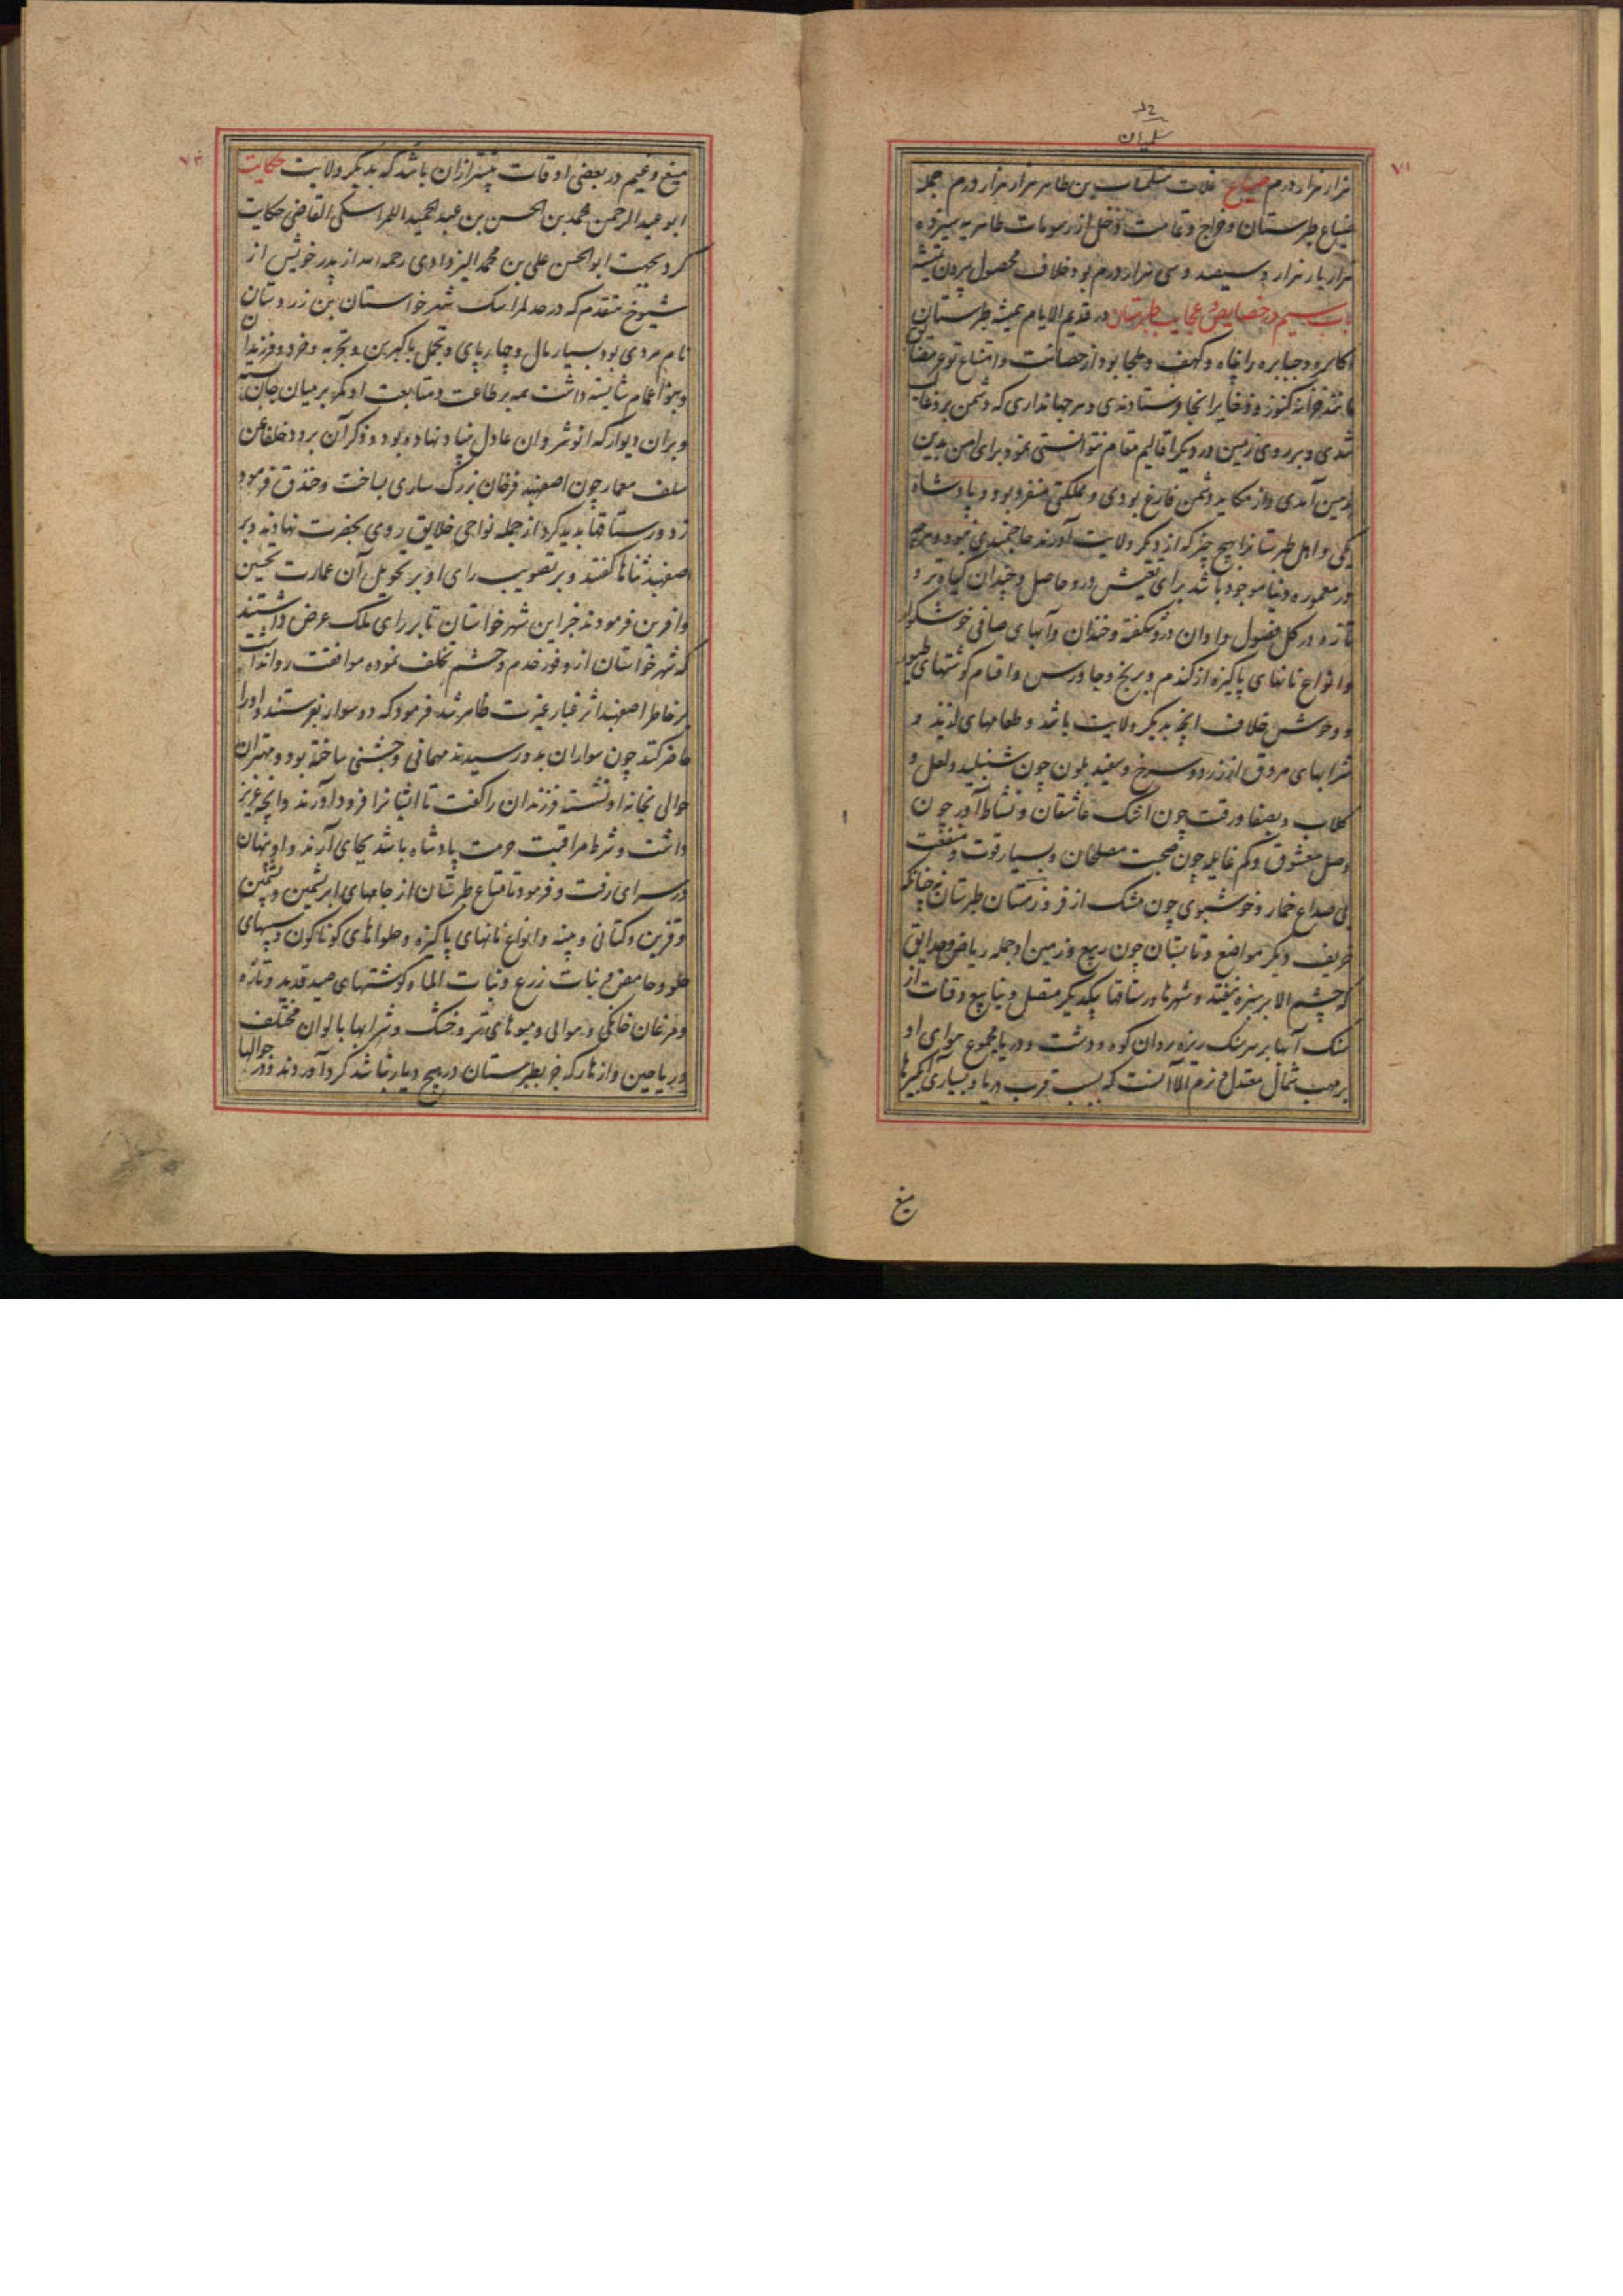 سلیمان
۷۱
هزار هزار درم ضیاع غلات سلیمان بن طاهر هزار هزار درم جمله
ضیاع طبرستان و خراج و دخل از رسومات طاهریه سیزده
هزار بار هزار و سیصد و سی هزار درم بود خلاف محصول بیرون تمیشه
باب سیم در خصایص و عجایب طبرستان در قدیم الایام همیشه طبرستان
اکاسره و جبابره را پناه و کهف و ملجا بود از حصانت و امتناع
خزانه کنوز و ذخایر آنجا فرستادندی و هر جهانداری که دشمن برو غالب
شدی و بر روی زمین در دیگر اقالیم مقام نتوانستی نمود برای امن بدین
زمین آمدی و از مکاید دشمن فارغ بودی و مملکتی منفرد بود و پادشاه
یکی و اهل طبرستانرا بهیچ چیز که از دیگر ولایت آورند حاجتمندی نبود و هرچه
در معموره دنیا موجود باشد برای تعیش درو حاصل و چندان گیاه تر و
تازه در کل فصول و اوان درو شکفته و خندان و آبهای صافی خوشگوار
و انواع نانهای پاکیزه از گندم و برنج و جاورس و اقسام گوشتهای طیور
و وحوش خلاف آنچه بدیگر ولایت باشد و طعامهای لذیذ و
شرابهای مروق از زرد و سرخ و سفید بلون چون شنبلید و لعل و
گلاب و بصفا و رقت چون اشک عاشقان و نشاط آور چون
وصل معشوق و کم غایله چون صحبت مصلحان و بسیار قوت و منفعت
بی صداع خمار و خوشبوی چون مشک اذفر و زمستان طبرستان چنانکه
خریف دیگر مواضع و تابستان چون ربیع و زمین او جمله ریاض و حدایق
که چشم الا بر سبزه نیفتد و شهرها و رستاقها بیکدیگر متصل و ینابیع و قنات از
سنگ آبها بر سر سنگ ریزه روان کوه و دشت و دریا مجموع هوای او
بر مهب شمال معتدل نرم الا آنست که بسبب قرب دریا و بسیاری آبگیرها
میغ
۷۲
میغ و غیم در بعضی اوقات بیشتر ازان باشد که بدیگر ولایت حکایت
ابو عبد الرحمن محمد بن الحسن بن عبد الحمید القاضی حکایت
کرد بجهت ابو الحسن علی بن محمد الیزدادی رحمه الله از پدر خویش از
شیوخ متقدم که در حد شهر خواستان بن زردستان
نام مردی بود بسیار مال و چارپای و تجمل با کبر سن و تجربه و خرد و فرزندان
و بنو اعمام شایسته داشت همه بر طاعت و متابعت او کمر بر میان جان بسته
و بران دیوار که انوشروان عادل بنیاد نهاده بود و ذکر آن برود خلفا عن
سلف معمار چون اصفهبد فرخان بزرگ ساری بساخت و خندق فرمود
زد و رستاقها بدید کرد از جمله نواحی خلایق روی بحضرت نهادند و بر
اصفهبد ثناها گفتند و بر تصویب رای او بر تحویل آن عمارت تحسین
و آفرین فرمودند جز این شهر خواستان تا بر رای ملک عرض داشتند
که شهر خواستان از وفور خدم و حشم تخلف نموده موافقت روا نداشت
بر خاطر اصفهبد اثر غبار غیرت ظاهر شد فرمود که دو سوار بفرستند و او را
حاضر کنند چون سواران بدو رسیدند مهمانی و جشنی ساخته بود و مهتران
حوالی بخانه او نشسته فرزندان را گفت تا ایشانرا فرود آورند و آنچه عزیز
داشت و شرط مراقبت حرمت پادشاه باشد بجای آرند و او پنهان
در سرای رفت و فرمود تا متاع طبرستان از جامهای ابریشمین و پشمین
و قزین و کتانی و پنبه و انواع نانهای پاکیزه و حلواهای گوناگون
حلو و حامض و نبات زرع و نبات الماء و گوشتهای صید قدید و تازه
و مرغان خانگی و هوایی و میوهای تر و خشک و شرابها بالوان مختلف
و ریاحین و ازهار که جز بطبرستان در هیچ دیار نباشد گرد آوردند و در جوالها